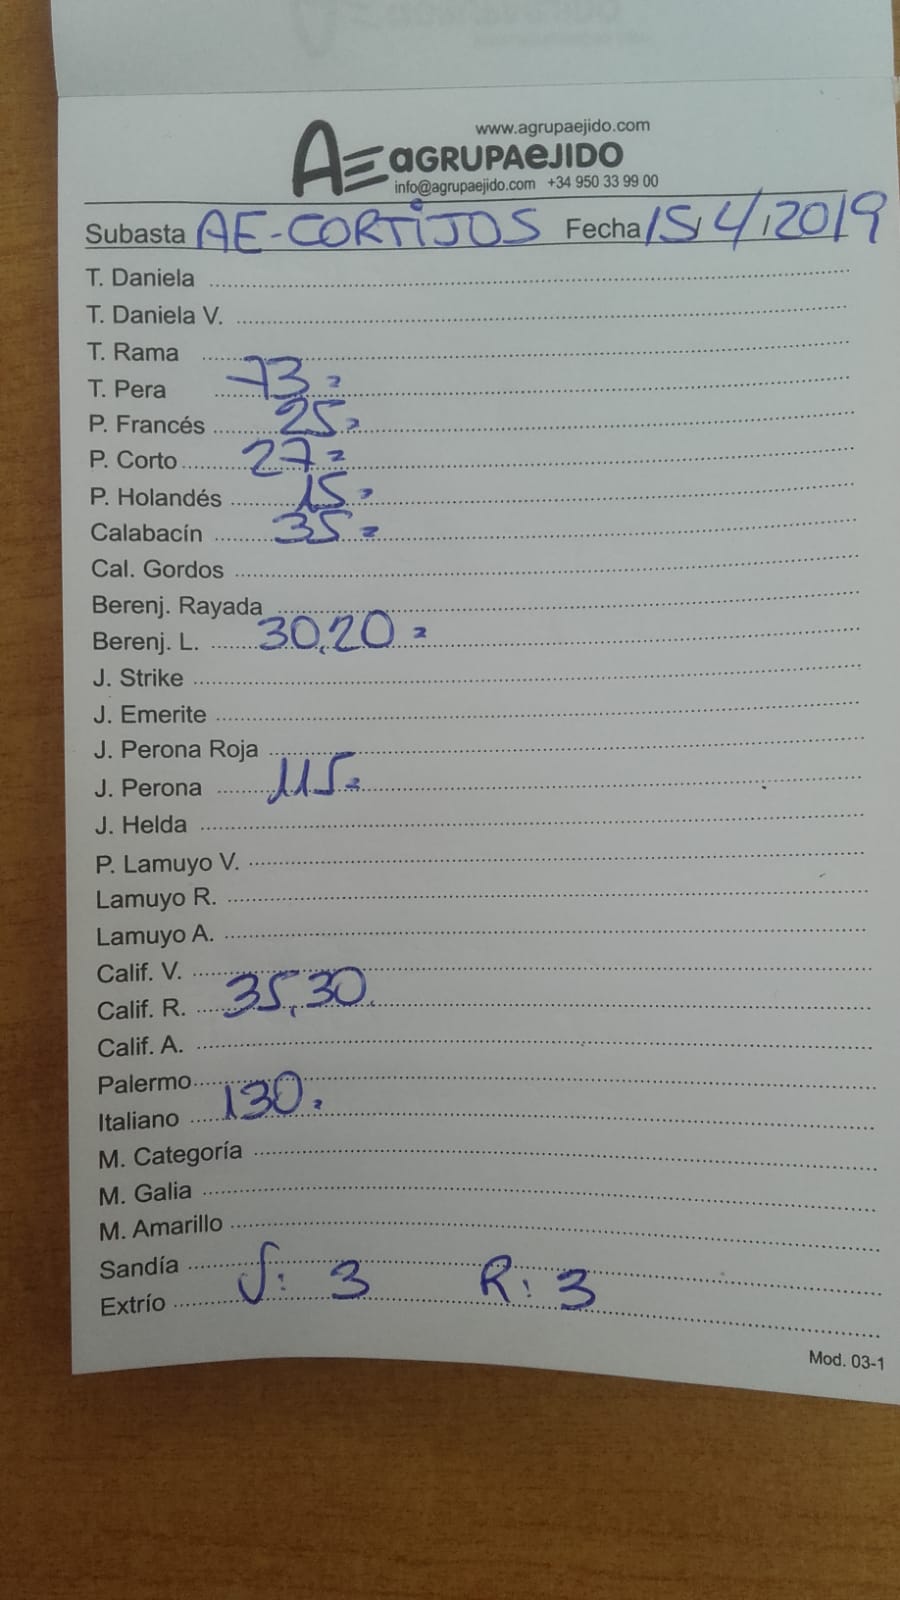 www.agrupaejido.com
AE AGRUPAEJIDO
info@agrupaejido.com +34 950 33 99 00
Subasta AE-CORTIJOS Fecha 15/4/2019
T. Daniela
T. Daniela V.
T. Rama
T. Pera 73=
P. Francés 25=
P. Corto 27=
P. Holandés 15=
Calabacín 35=
Cal. Gordos
Berenj. Rayada
Berenj. L. 30,20=
J. Strike
J. Emerite
J. Perona Roja
J. Perona 115=
J. Helda
P. Lamuyo V.
Lamuyo R.
Lamuyo A.
Calif. V.
Calif. R. 35,30
Calif. A.
Palermo
Italiano 130=
M. Categoría
M. Galia
M. Amarillo
Sandía
Extrío V: 3 R: 3
Mod. 03-1